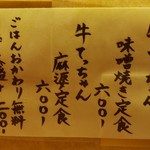 味噌焼き定食
六〇〇円
牛てっちゃん
麻婆定食
六〇〇円
ごはんおかわり無料
大盛り 二〇〇円